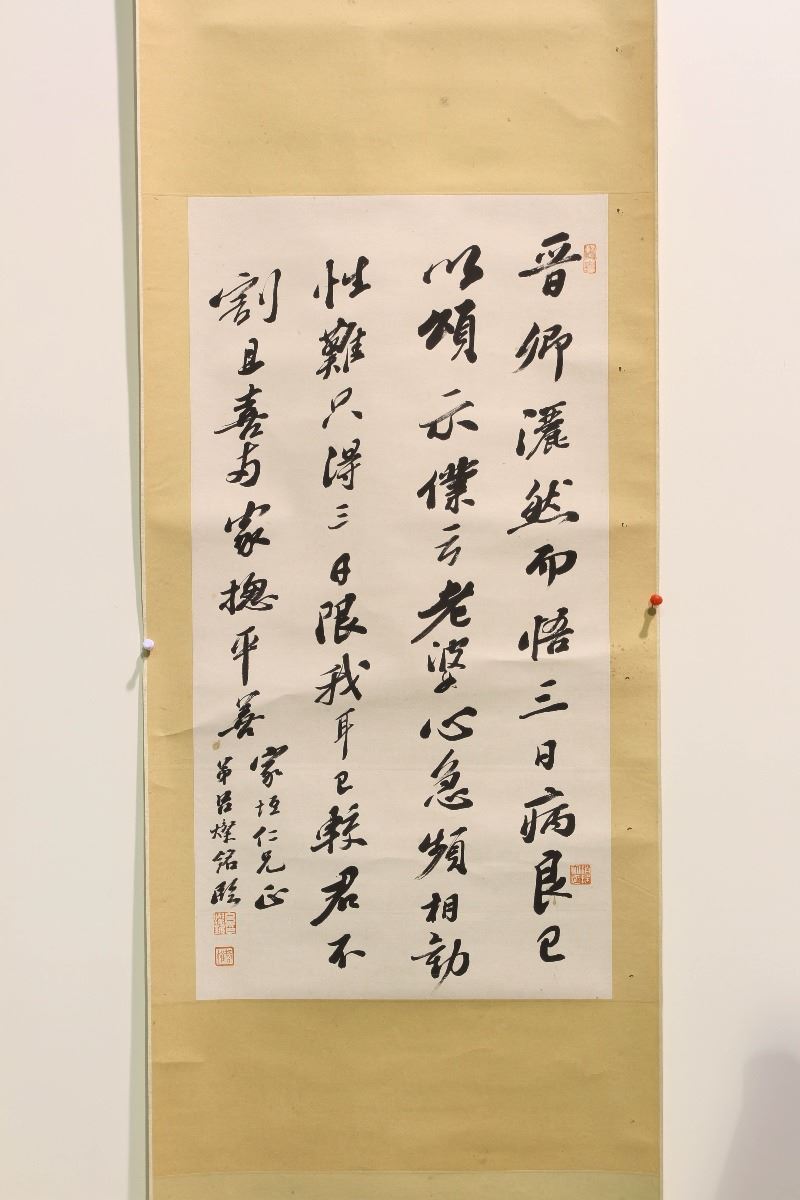 晉卿灑然而悟三日病良已
以頌示僕云老婆心急頻相勸
性難只得三日限我耳已較君不
割且喜两家揔平善
家垣仁兄正
弟呂燦銘臨